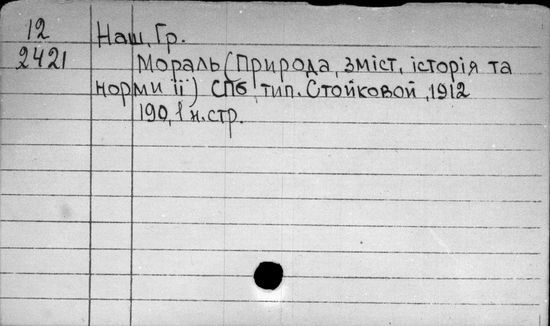 12
2421
Наш, Гр.
Мораль (Природа, зміст, історія та
норми її) СПб, тип. Стойковой, 1912
190, 1 н. стр.